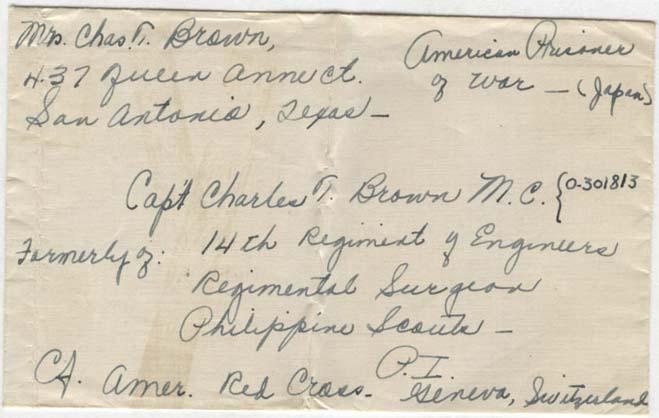 Mrs. Chas. T. Brown,
437 Queen Anne Ct.
San Antonio, Texas —
American Prisoner
of War — (Japan)
Capt Charles T. Brown M.C. {0-301813
Formerly of: 14th Regiment of Engineers
Regimental Surgeon
Philippine Scouts —
P.I.
Amer. Red Cross - Geneva, Switzerland